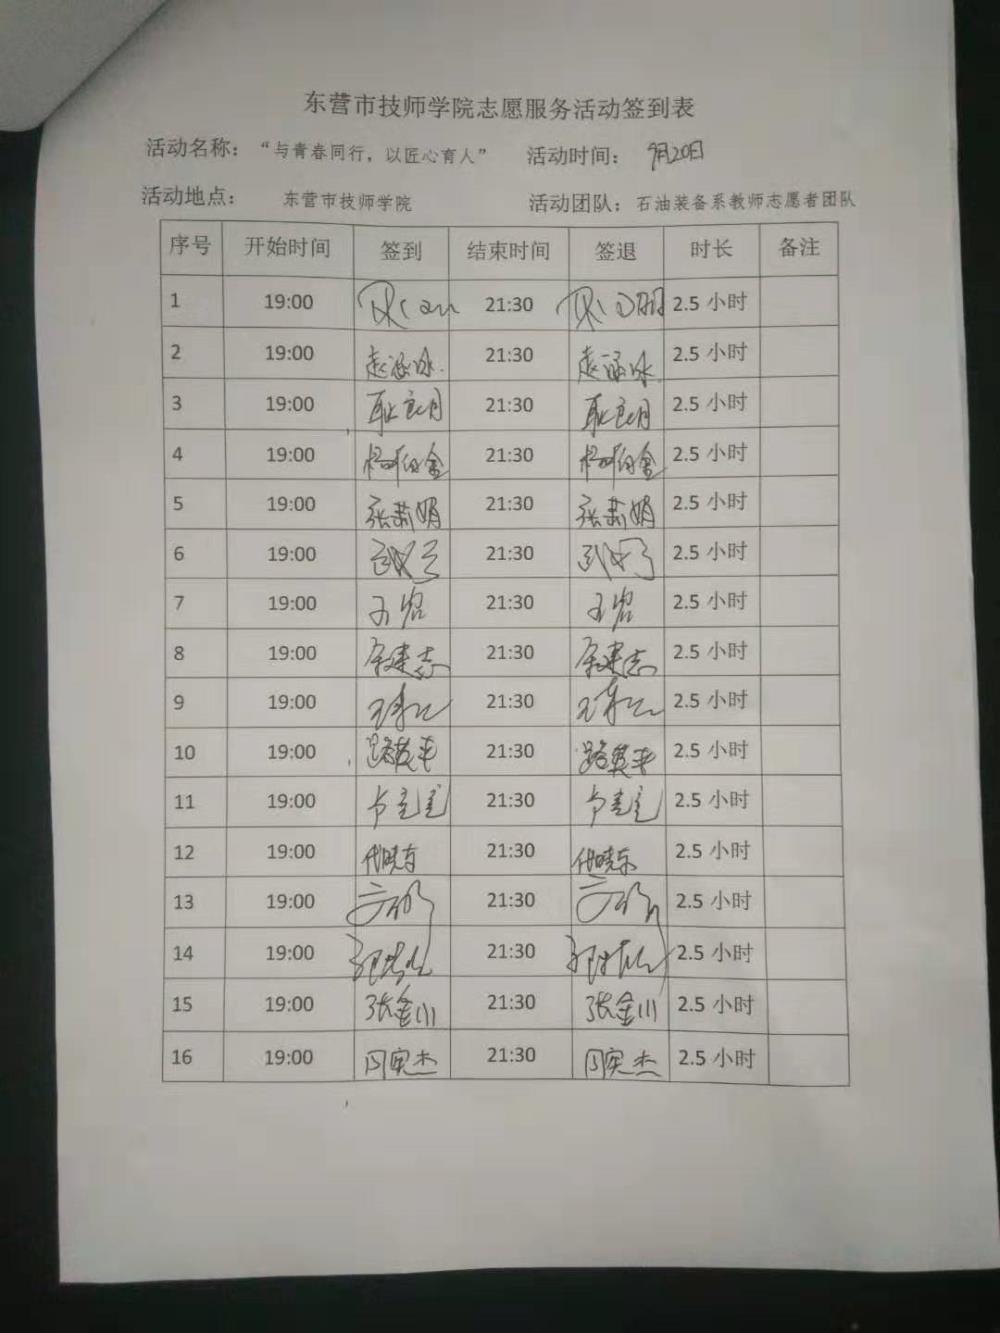 东营市技师学院志愿服务活动签到表
活动名称：“与青春同行，以匠心育人” 活动时间： 9月20日
活动地点： 东营市技师学院 活动团队：石油装备系教师志愿者团队
序号 开始时间 签到 结束时间 签退 时长 备注
1 19:00 21:30 2.5 小时
2 19:00 赵涵冰 21:30 赵涵冰 2.5 小时
3 19:00 耿良月 21:30 耿良月 2.5 小时
4 19:00 21:30 2.5 小时
5 19:00 张莉娟 21:30 张莉娟 2.5 小时
6 19:00 21:30 2.5 小时
7 19:00 王岩 21:30 王岩 2.5 小时
8 19:00 宋建志 21:30 宋建志 2.5 小时
9 19:00 21:30 2.5 小时
10 19:00 路英平 21:30 路英平 2.5 小时
11 19:00 21:30 2.5 小时
12 19:00 代晓东 21:30 代晓东 2.5 小时
13 19:00 21:30 2.5 小时
14 19:00 21:30 2.5 小时
15 19:00 张金川 21:30 张金川 2.5 小时
16 19:00 闫宪杰 21:30 闫宪杰 2.5 小时